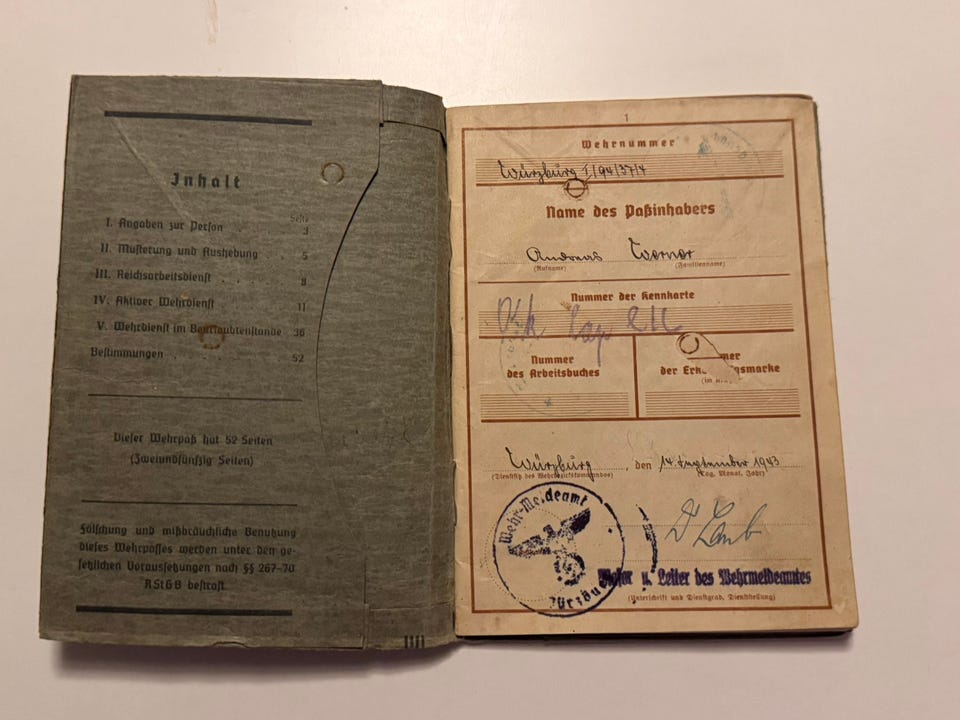 Inhalt
Seite
I. Angaben zur Person . . . 3
II. Musterung und Aushebung . . 5
III. Reichsarbeitsdienst . . . 8
IV. Aktiver Wehrdienst . . . 11
V. Wehrdienst im Beurlaubtenstande 36
Bestimmungen . . . 52
Dieser Wehrpaß hat 52 Seiten
(Zweiundfünfzig Seiten)
Fälschung und mißbräuchliche Benutzung
dieses Wehrpasses werden unter den ge-
setzlichen Voraussetzungen nach §§ 267–70
RStGB bestraft.
1
Wehrnummer
Würzburg I/94/37/4
Name des Paßinhabers
Andreas Werner
(Rufname) (Familienname)
Nummer der Kennkarte
Nummer
des Arbeitsbuches
der
(im
Würzburg, den 14. September 1943
(Dienstsitz des Wehrbezirkskommandos) (Tag, Monat, Jahr)
Wehr-Meldeamt
Würzburg
Major u. Leiter des Wehrmeldeamtes
(Unterschrift und Dienstgrad, Dienststellung)